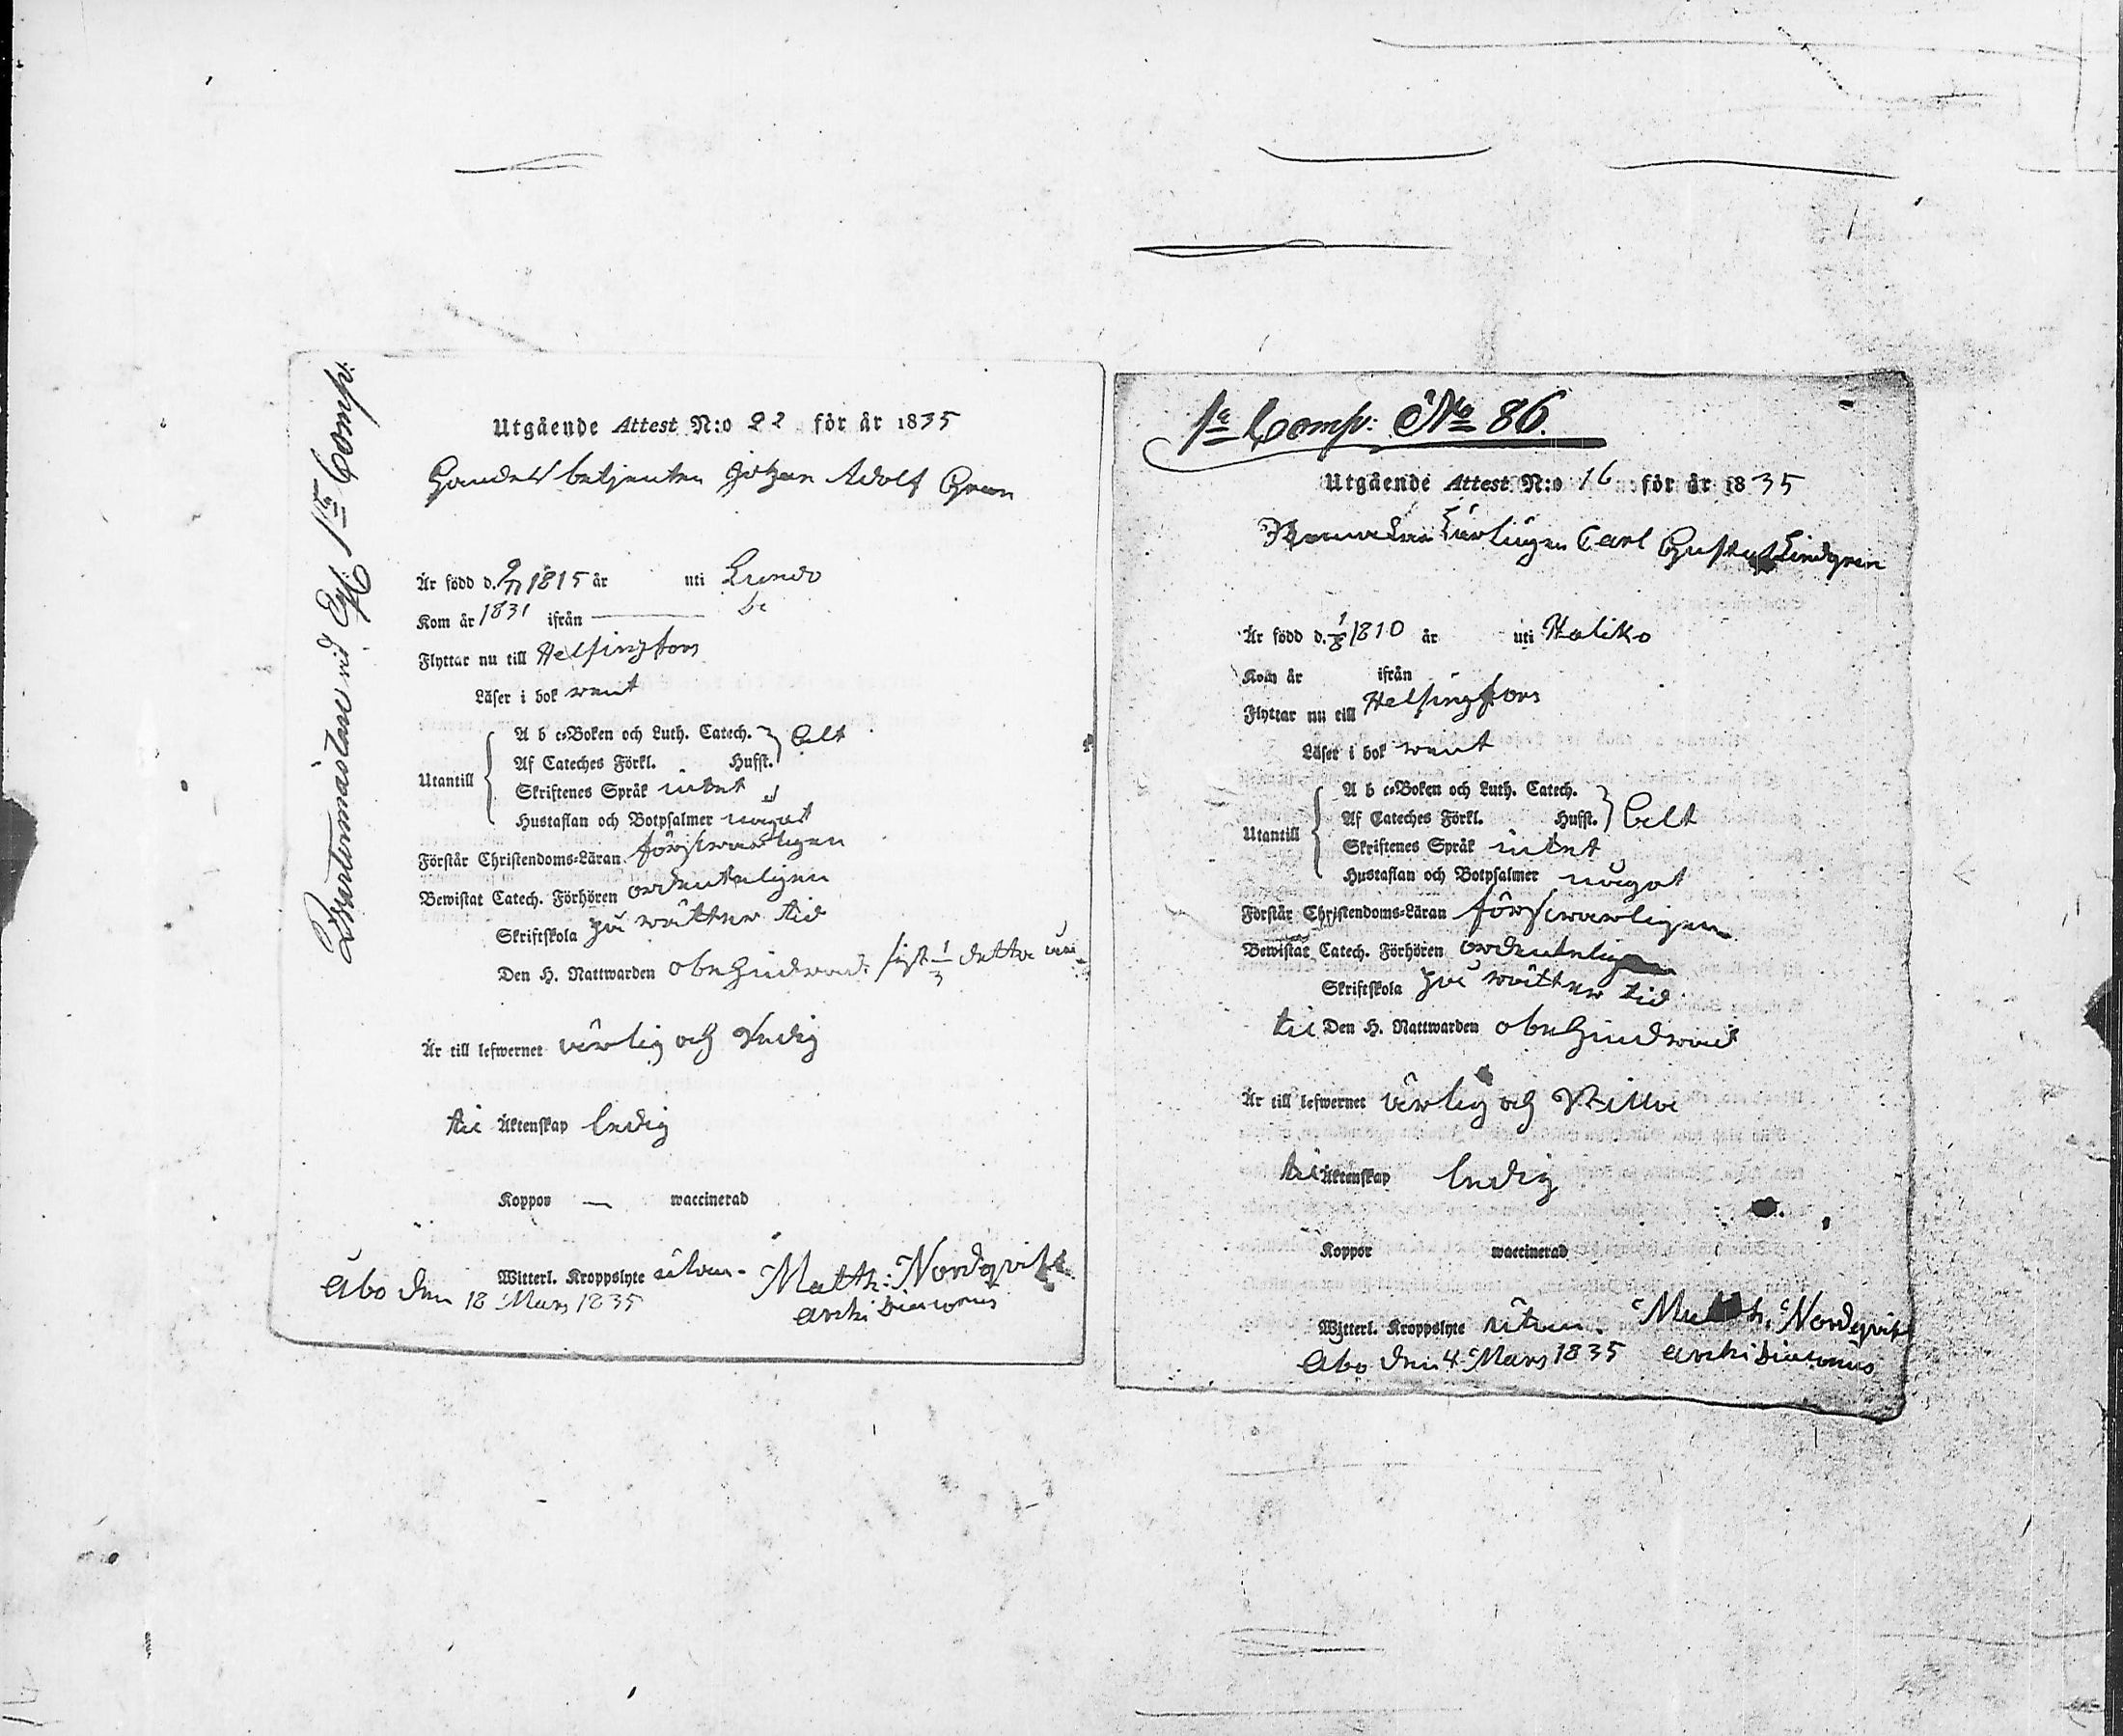 Qvartermästare vid Esk 1sta Comp.
Utgående Attest N:o 22 för år 1835
Handels betjenten Johan Adolf Gran
Är född d. 9/11 1815 år uti Lundo
Kom år 1831 ifrån ———
Flyttar nu till Helsingfors
Läser i bok rent
A b c-Boken och Luth. Catech.
Af Cateches Förkl. Hufst. helt
Utantill
Skriftenes Språk intet
Hustaflan och Botpsalmer något
Förstår Christendoms-Läran försvarligen
Bewistat Catech. Förhören ordenteligen
Skriftskola på rätter tid
Den H. Nattwarden obehindrad sist 1/3 detta
Är till lefwernet ärlig och
til Äktenskap ledig
Koppor — waccinerad
Witterl. Kroppslyte utan. Matth: Nordqvist
Åbo den 18 Mars 1835 archi Diaconus
1a Comp: No 86.
Utgående Attest N:o 16 för år 1835
Carl Gustaf Lindgren
Är född d. 1/8 1810 år uti Haliko
Kom år ifrån
Flyttar nu till Helsingfors
Läser i bok rent
A b c-Boken och Luth. Catech.
Af Cateches Förkl. Hufst. helt
Utantill
Skriftenes Språk intet
Hustaflan och Botpsalmer något
Förstår Christendoms-Läran försvarligen
Bewistat Catech. Förhören ordenteligen
Skriftskola på rätter tid
til Den H. Nattwarden obehindrad
Är till lefwernet ärlig och stilla
til Äktenskap ledig
Koppor waccinerad
Witterl. Kroppslyte utan. Matth: Nordqvist
Åbo den 4 Mars 1835 archi Diaconus